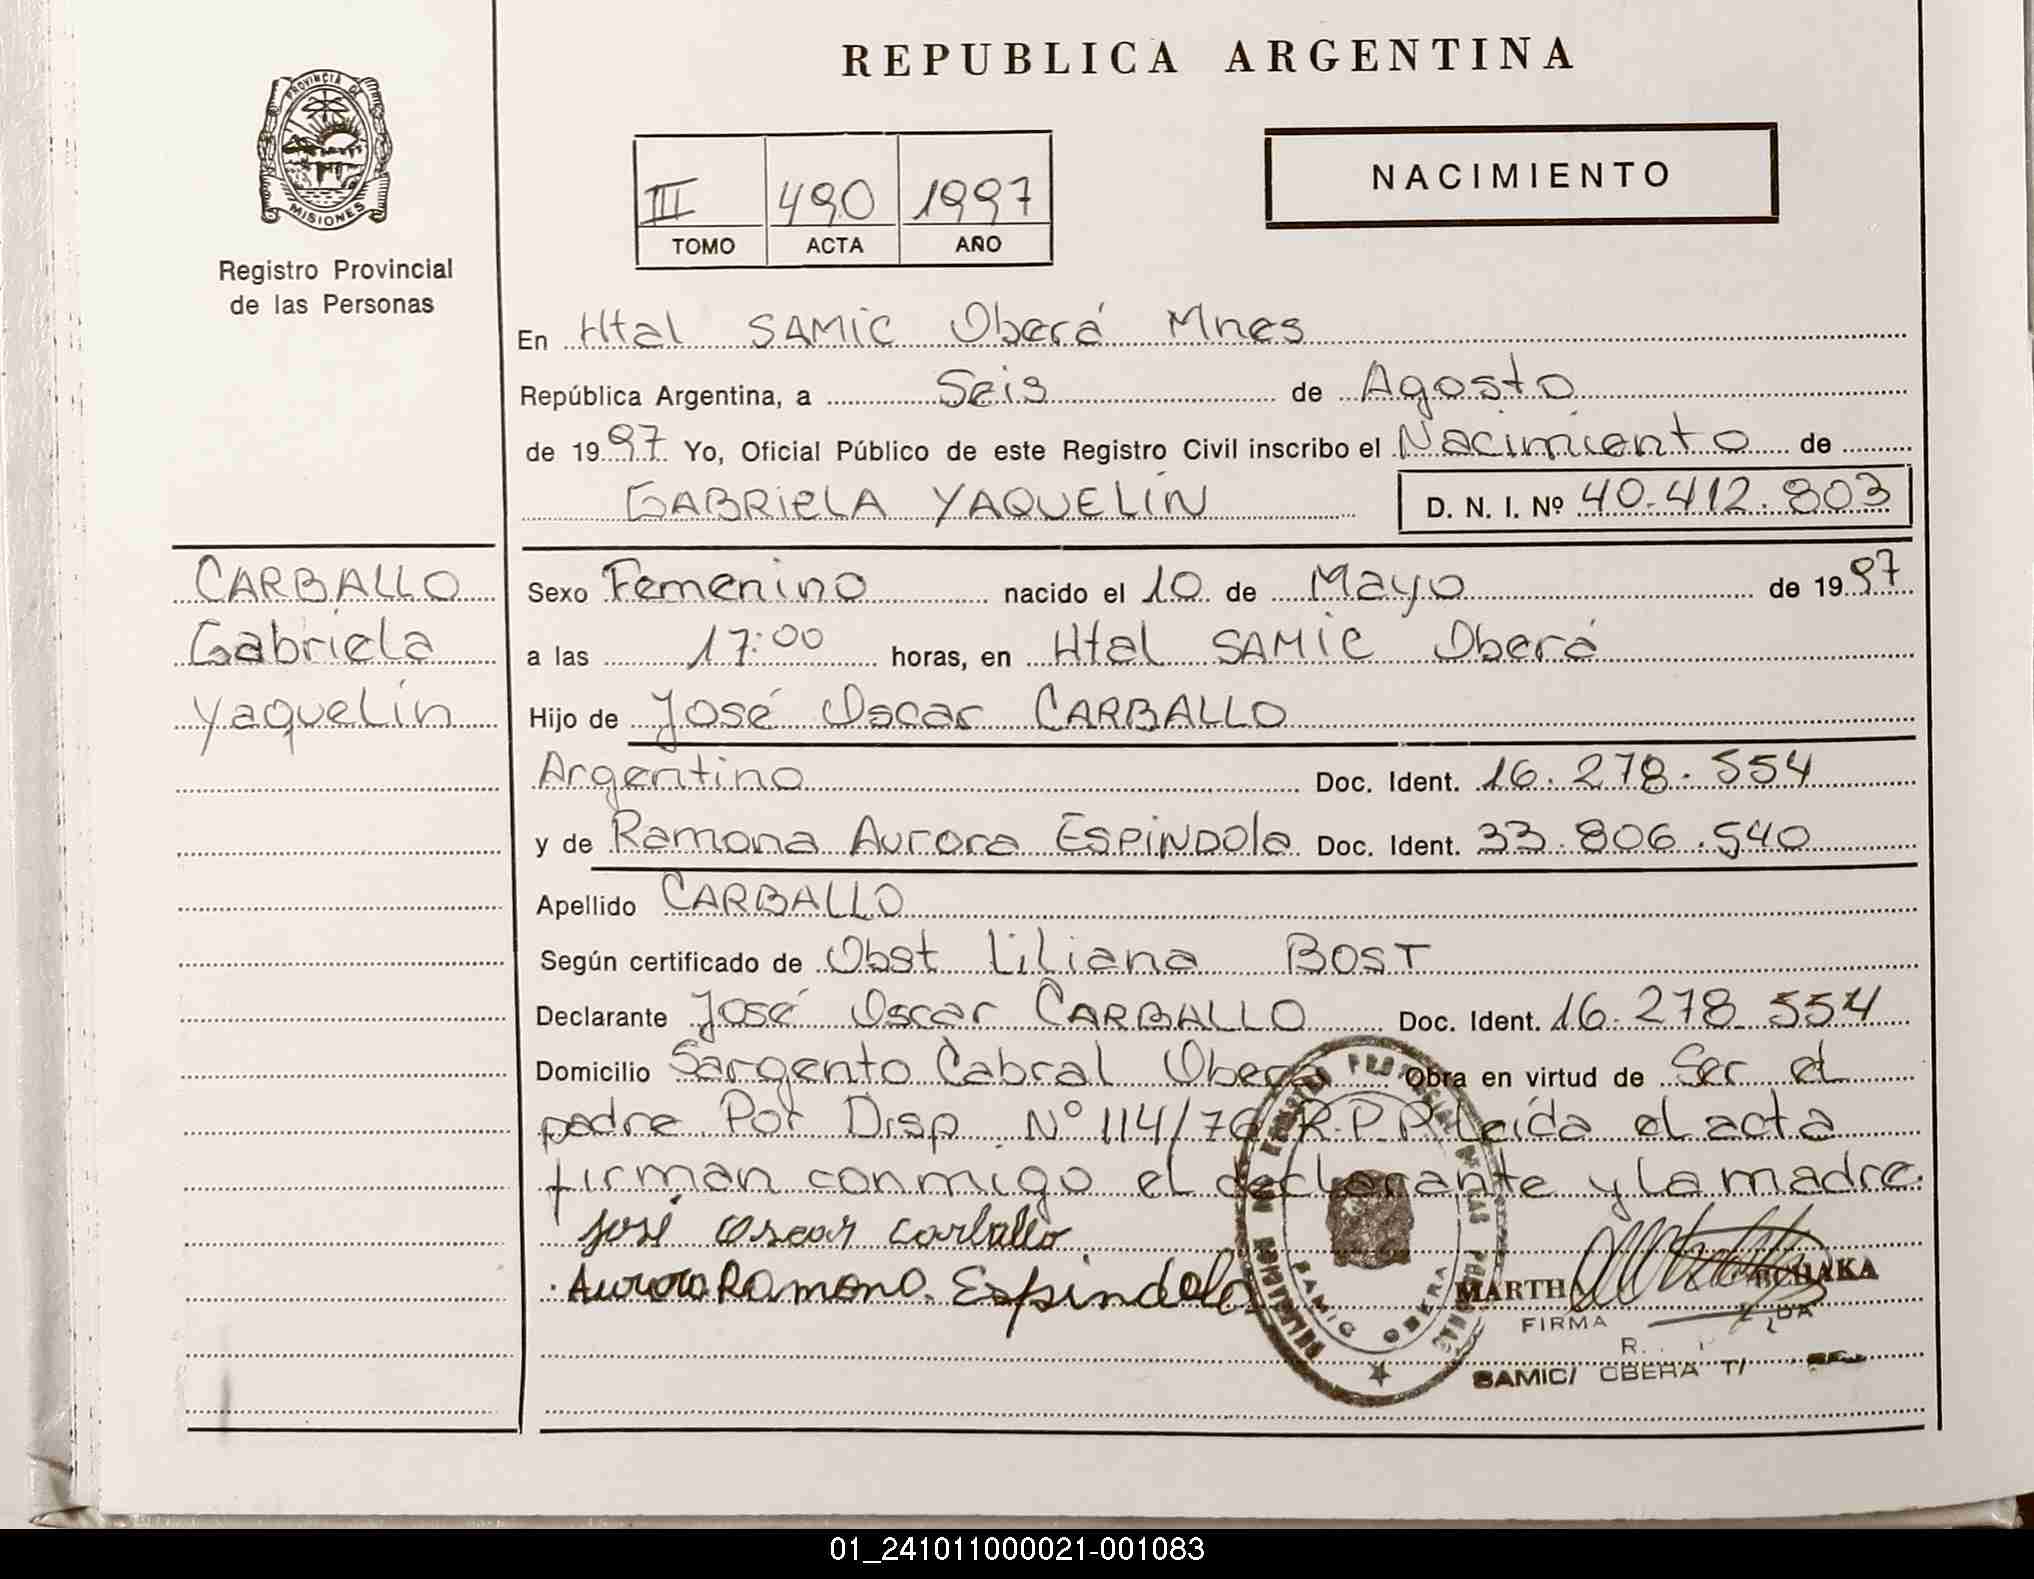 REPUBLICA ARGENTINA
PROVINCIA DE
MISIONES
Registro Provincial
de las Personas
III 490 1997
TOMO ACTA AÑO
NACIMIENTO
En Htal SAMIC Oberá Mnes
República Argentina, a Seis de Agosto
de 1997 Yo, Oficial Público de este Registro Civil inscribo el Nacimiento de
GABRIELA YAQUELIN D. N. I. Nº 40.412.803
CARBALLO
Gabriela
Yaquelin
Sexo Femenino nacido el 10 de Mayo de 1997
a las 17:00 horas, en Htal SAMIC Oberá
Hijo de José Oscar CARBALLO
Argentino Doc. Ident. 16.278.554
y de Ramona Aurora ESPINDOla Doc. Ident. 33.806.540
Apellido CARBALLO
Según certificado de Obst Liliana BOST
Declarante José Oscar CARBALLO Doc. Ident. 16.278.554
Domicilio Sargento Cabral Oberá Obra en virtud de Ser el
padre Por Disp. Nº 114/76 R.P.P. Leída el acta
firman conmigo el declarante y la madre.
José Oscar Carballo
Aurora Ramona Espindola
SAMIC OBERA
MARTHA
FIRMA
SAMIC/ OBERA
01_241011000021-001083